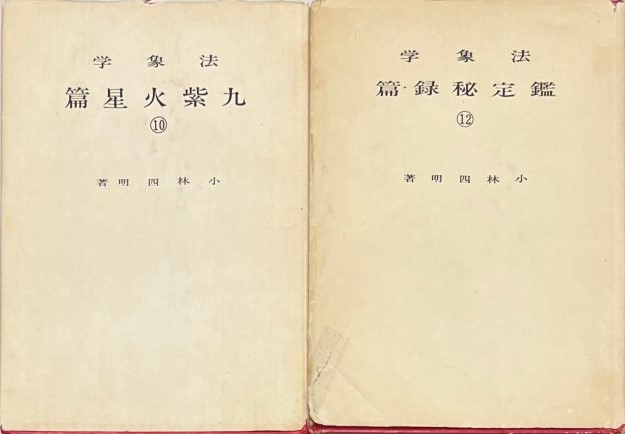 法象学
九紫火星篇
⑩
小林四明著
法象学
鑑定秘録篇
⑫
小林四明著